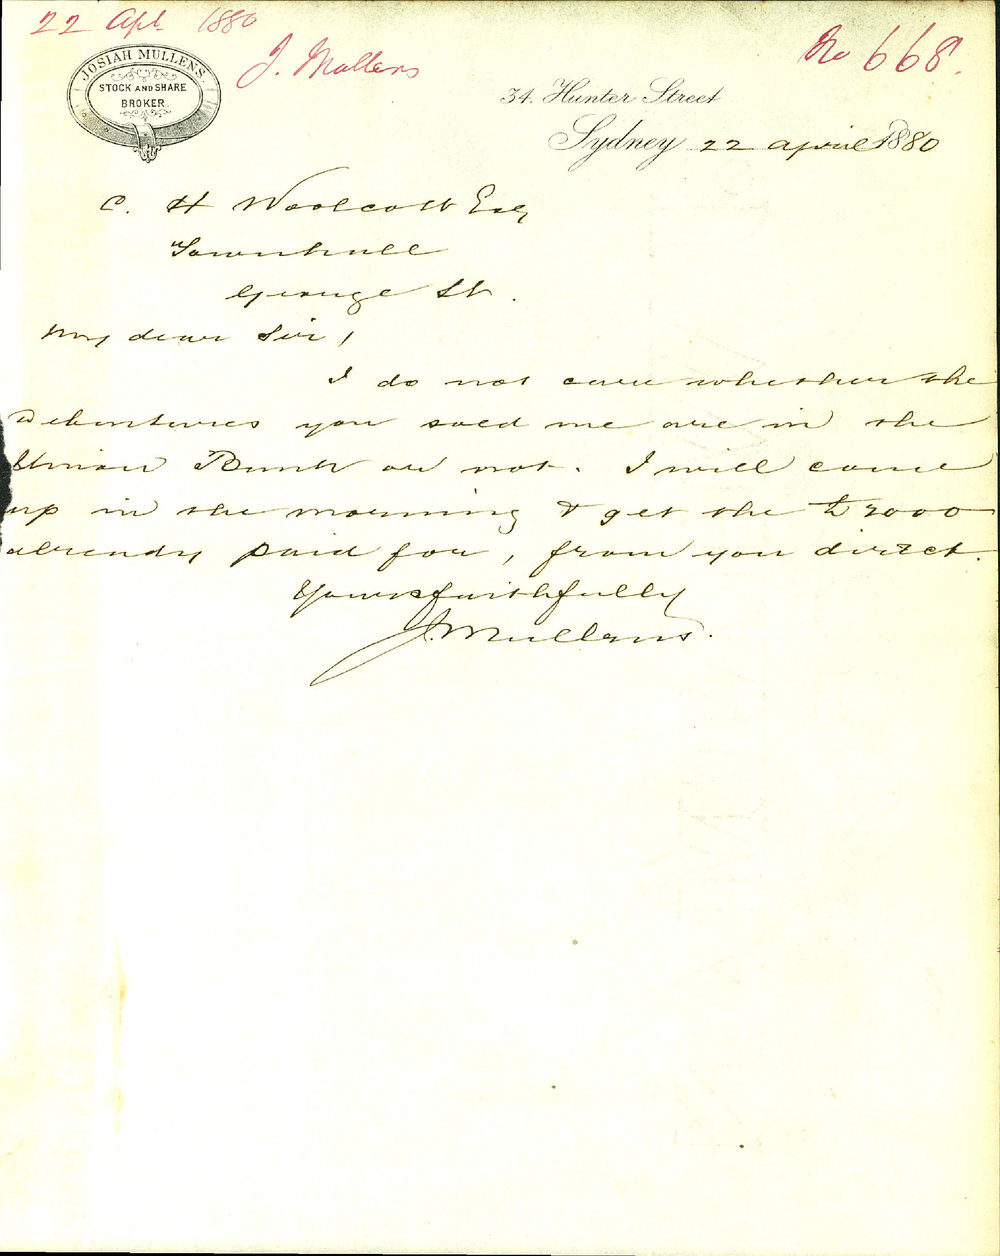 22 Apl 1880
J. Mullens
No 668.
JOSIAH MULLENS.
STOCK AND SHARE
BROKER.
34. Hunter Street
Sydney 22 april 1880
C. H Woolcott Esq
Townhall
George St.
My dear Sir,
I do not care whether the
Debentures you sold me are in the
Union Bank or not. I will come
up in the morning & get the £2000
already paid for, from you direct.
Yours faithfully
J. Mullens.